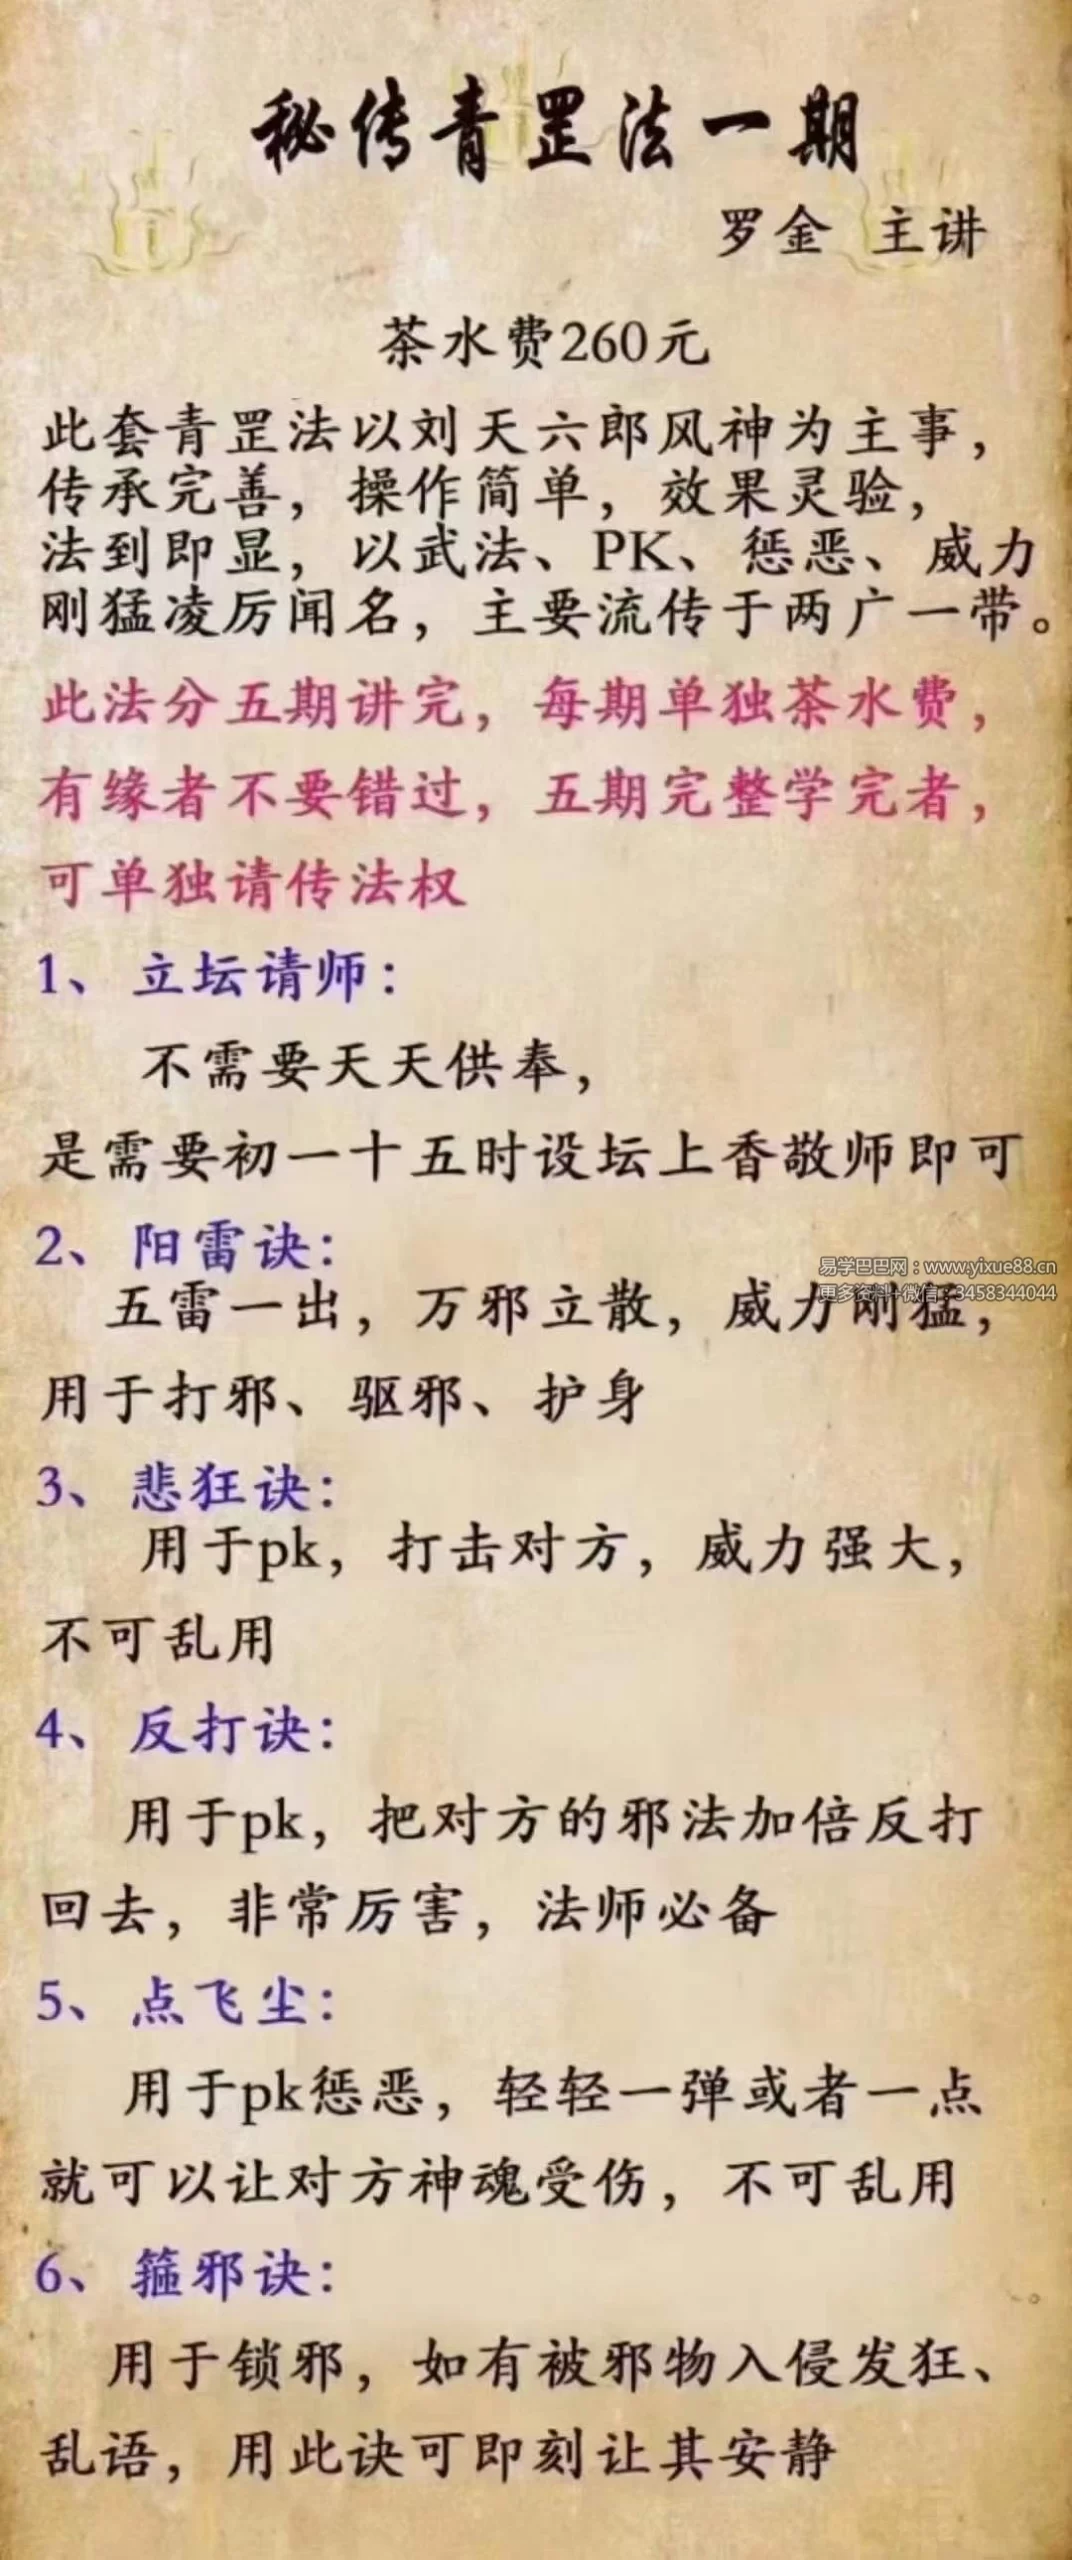 秘传青罡法一期
罗金 主讲
茶水费260元
此套青罡法以刘天六郎风神为主事，
传承完善，操作简单，效果灵验，
法到即显，以武法、PK、惩恶、威力
刚猛凌厉闻名，主要流传于两广一带。
此法分五期讲完，每期单独茶水费，
有缘者不要错过，五期完整学完者，
可单独请传法权
1、立坛请师：
不需要天天供奉，
是需要初一十五时设坛上香敬师即可
2、阳雷诀：
易学巴巴网：www.yixue88.cn
更多资料+微信：3458344044
五雷一出，万邪立散，威力刚猛，
用于打邪、驱邪、护身
3、悲狂诀：
用于pk，打击对方，威力强大，
不可乱用
4、反打诀：
用于pk，把对方的邪法加倍反打
回去，非常厉害，法师必备
5、点飞尘：
用于pk惩恶，轻轻一弹或者一点
就可以让对方神魂受伤，不可乱用
6、箍邪诀：
用于锁邪，如有被邪物入侵发狂、
乱语，用此诀可即刻让其安静